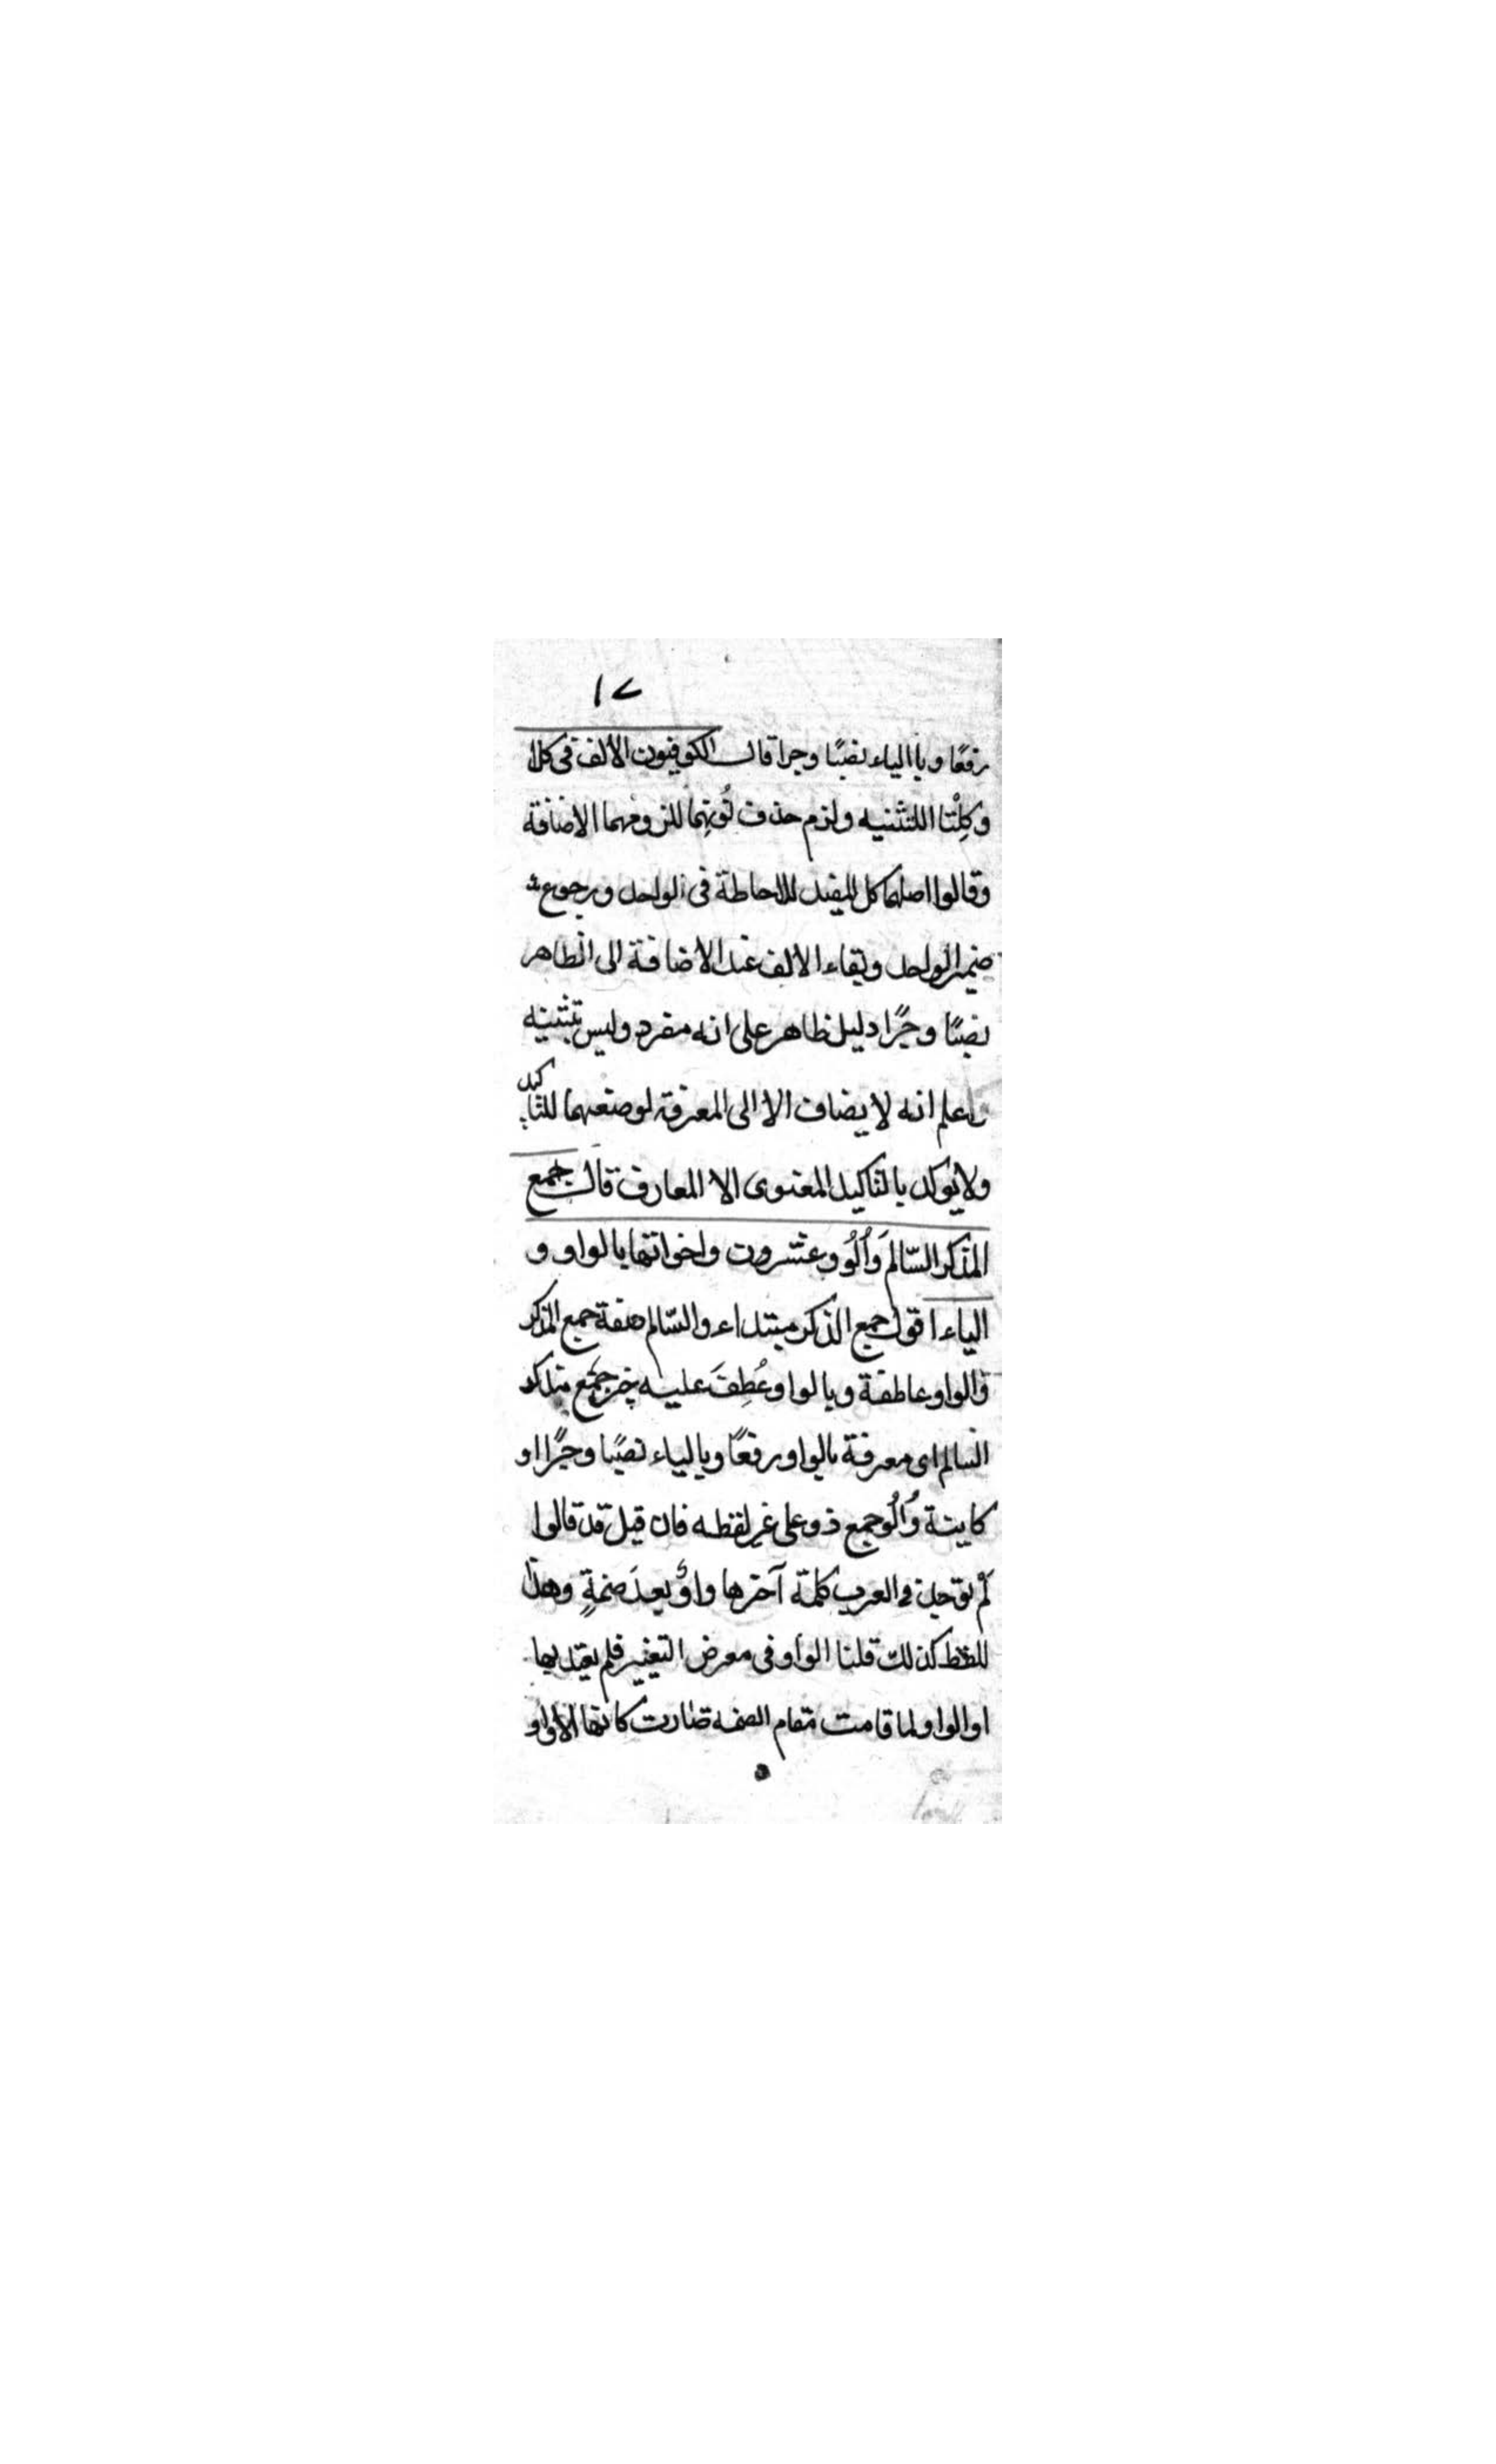 ١٧
رفعًا وباالياء نصبًا وجرا قال الكوفيون الالف فى كلا
وكِلْتا اللتثنيه ولزم حذف نُونِهما للزومهما الاضافة
وقالوا اصلهما كل ليفيد للاحاطة فى الواحد ورجوع
ضمير الواحد وبقاء الالف عند الاضافة الى الظاهر
نصبًا وجرًا دليل ظاهر على انه مفرد وليس بتثنيه
واعلم انه لا يضاف الا الى المعرفة لوضعهما للتاكيد
ولا يؤكد بالتاكيد المعنوى الا المعارف قال جمع
المذكر السّالم وَاُلُو وعشرون واخواتها بالواو و
الياء اقول جمع الذكر مبتداء والسّالم صفة جمع المذكر
والواو عاطفة وبالواو عُطِفَ عليه خبر جمع مذكر
السالم اى معرفة بالواو رفعًا وبالياء نصبًا وجرًا او
كاينة وَاُلُو جمع ذو على غير لفظه فان قيل قد قالوا
لم يوجد فى العرب كلمة آخرها واوٌ بعدَ ضمةٍ وهذا
اللفظ كذلك قلنا الواو فى معرض التغيير فلم يعتد بها
او الواو لما قامت مقام الضمه صارت كانها الا واو